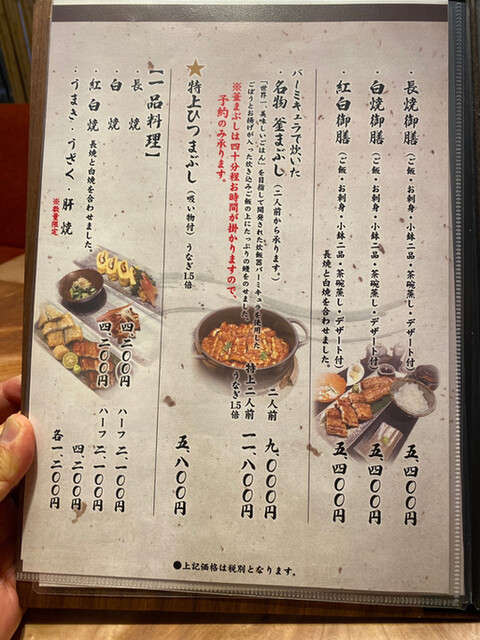 ・長焼御膳（ご飯・お刺身・小鉢二品・茶碗蒸し・デザート付）五、四〇〇円
・白焼御膳（ご飯・お刺身・小鉢二品・茶碗蒸し・デザート付）五、四〇〇円
・紅白御膳（ご飯・お刺身・小鉢二品・茶碗蒸し・デザート付）五、四〇〇円
長焼と白焼を合わせました。
バーミキュラで炊いた
・名物 釜まぶし（二人前から承ります。）二人前 九、〇〇〇円
特上二人前 一一、八〇〇円
うなぎ1.5倍
「世界一、美味しいごはん」を目指して開発された炊飯器バーミキュラを使用した、
ごぼうとお揚げが入った炊き込みご飯の上にたっぷりの鰻をのせました。
※釜まぶしは四十分程お時間が掛かりますので、
予約のみ承ります。
★特上ひつまぶし（吸い物付）うなぎ1.5倍 五、八〇〇円
【一品料理】
・長焼 四、二〇〇円 ハーフ 二、一〇〇円
・白焼 四、二〇〇円 ハーフ 二、一〇〇円
・紅白焼 長焼と白焼を合わせました。 四、二〇〇円
・うまき・うざく・肝焼 各一、二〇〇円
※数量限定
●上記価格は税別となります。